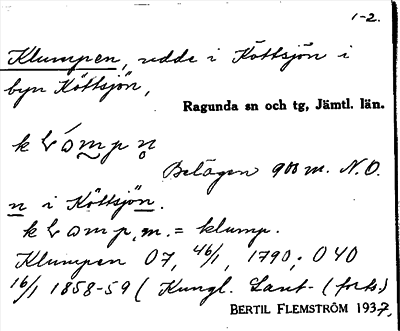 1-2.
Klumpen, udde i Köttsjön i
byn Köttsjön,
Ragunda sn och tg, Jämtl. län.
Belägen 900 m. N.O.
n i Köttsjön.
m. = klump.
Klumpen 07, 46/1, 1790; 040
16/1 1858-59 (Kungl. Lant- (forts.)
BERTIL FLEMSTRÖM 1937.